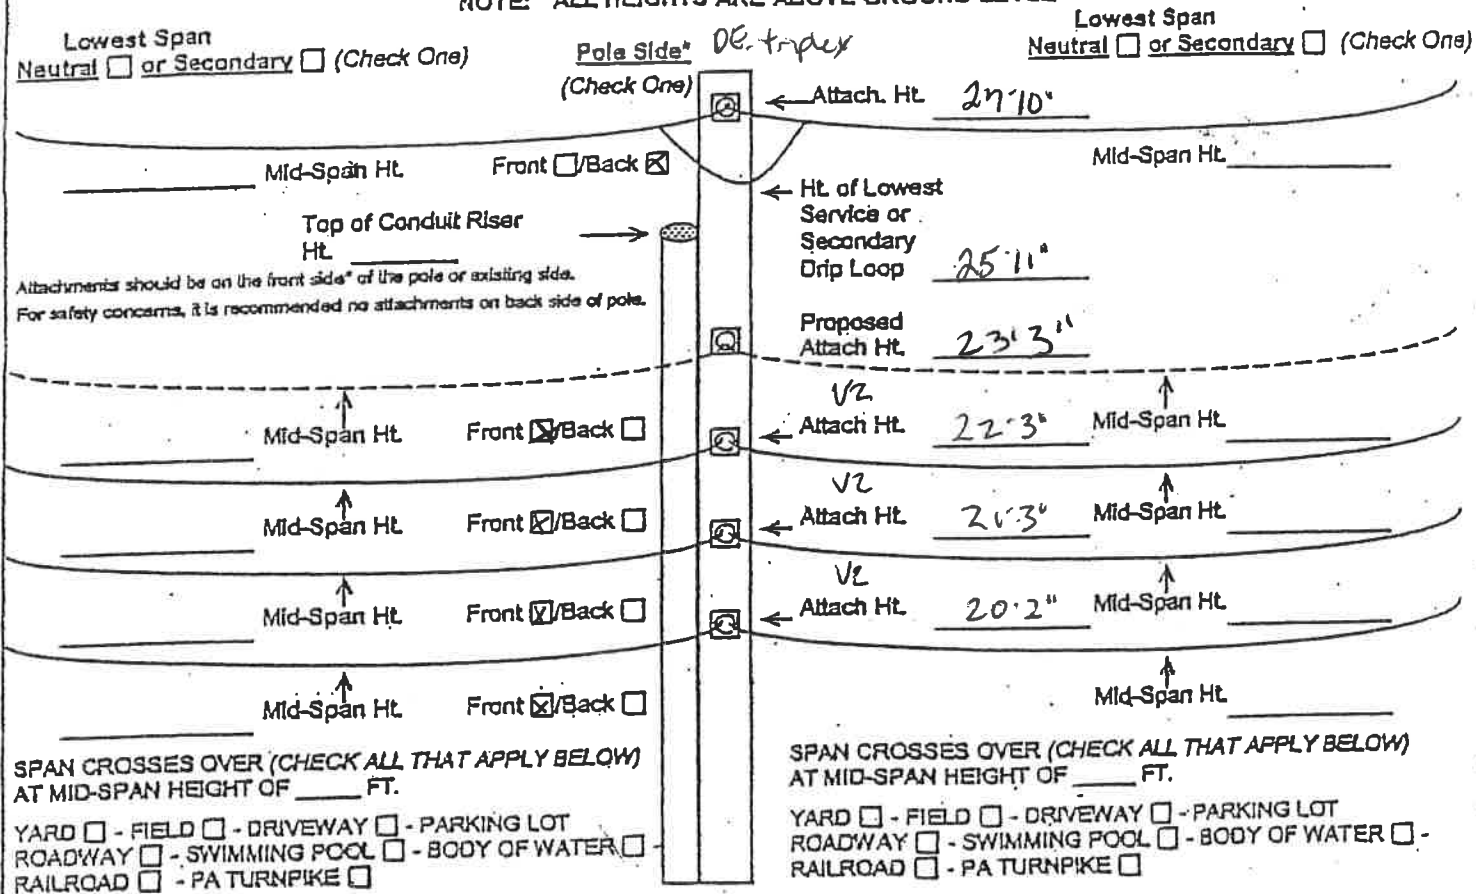 NOTE: ALL HEIGHTS ARE ABOVE GROUND LEVEL
Lowest Span
Neutral ☐ or Secondary ☐ (Check One)
Pole Side* DE. triplex
(Check One)
Lowest Span
Neutral ☐ or Secondary ☐ (Check One)
Attach. Ht. 27'10"
Mid-Span Ht. Front ☐/Back ☒
Mid-Span Ht.
Top of Conduit Riser
Ht.
Ht. of Lowest
Service or
Secondary
Drip Loop 25'11"
Attachments should be on the front side* of the pole or existing side.
For safety concerns, it is recommended no attachments on back side of pole.
Proposed
Attach Ht. 23'3"
Mid-Span Ht. Front ☒/Back ☐
VZ
Attach Ht. 22'3" Mid-Span Ht.
Mid-Span Ht. Front ☒/Back ☐
VZ
Attach Ht. 21'3" Mid-Span Ht.
Mid-Span Ht. Front ☒/Back ☐
VZ
Attach Ht. 20'2" Mid-Span Ht.
Mid-Span Ht. Front ☒/Back ☐
Mid-Span Ht.
SPAN CROSSES OVER (CHECK ALL THAT APPLY BELOW)
AT MID-SPAN HEIGHT OF ____ FT.
YARD ☐ - FIELD ☐ - DRIVEWAY ☐ - PARKING LOT
ROADWAY ☐ - SWIMMING POOL ☐ - BODY OF WATER ☐ -
RAILROAD ☐ - PA TURNPIKE ☐
SPAN CROSSES OVER (CHECK ALL THAT APPLY BELOW)
AT MID-SPAN HEIGHT OF ____ FT.
YARD ☐ - FIELD ☐ - DRIVEWAY ☐ - PARKING LOT
ROADWAY ☐ - SWIMMING POOL ☐ - BODY OF WATER ☐ -
RAILROAD ☐ - PA TURNPIKE ☐